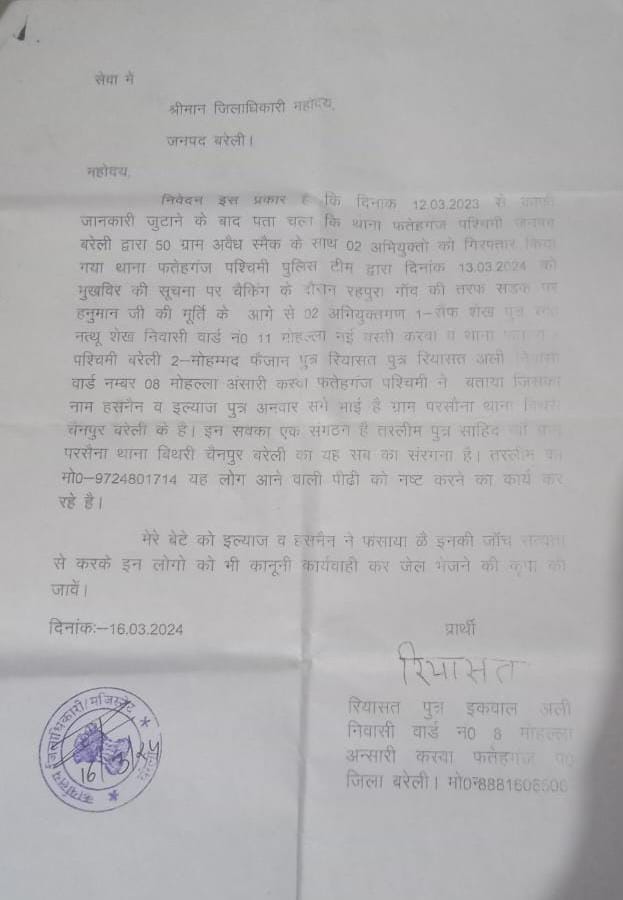 सेवा में
श्रीमान जिलाधिकारी महोदय,
जनपद बरेली।
महोदय,
निवेदन इस प्रकार है कि दिनांक 12.03.2023 से काफी
जानकारी जुटाने के बाद पता चला कि थाना फतेहगंज पश्चिमी जनपद
बरेली द्वारा 50 ग्राम अवैध स्मैक के साथ 02 अभियुक्तो को गिरफ्तार किया
गया थाना फतेहगंज पश्चिमी पुलिस टीम द्वारा दिनांक 13.03.2024 को
मुखविर की सूचना पर चैकिंग के दौरान रहपुरा गाँव की तरफ सडक पर
हनुमान जी की मूर्ति के आगे से 02 अभियुक्तगण 1-सैफ शेख पुत्र
नत्थू शेख निवासी वार्ड नं0 11 मोहल्ला नई वस्ती करवा व थाना
पश्चिमी बरेली 2-मोहम्मद फैजान पुत्र रियासत पुत्र रियासत अली निवासी
वार्ड नम्बर 08 मोहल्ला अंसारी कस्वा फतेहगंज पश्चिमी ने बताया जिसका
नाम हसनैन व इल्याज पुत्र अनवार सगे भाई है ग्राम परसौना थाना विथरी
चैनपुर बरेली के है। इन सवका एक संगठन है तस्लीम पुत्र साहिद
परसैना थाना विथरी चैनपुर बरेली का यह सब का संरगना है। तरलीम का
मो0-9724801714 यह लोग आने वाली पीढी को नष्ट करने का कार्य कर
रहे है।
मेरे बेटे को इल्याज व हसनैन ने फंसाया है इनकी जाँच सत्यता
से करके इन लोगो को भी कानूनी कार्यवाही कर जेल भेजने की कृपा की
जावें।
दिनांक:-16.03.2024
प्रार्थी
रियासत
रियासत पुत्र इकवाल अली
निवासी वार्ड न0 8 मोहल्ला
अन्सारी कस्वा फतेहगंज प0
जिला बरेली। मो0न0
कार्यालय जिलाधिकारी/मजिस्ट्रेट
16/3/24